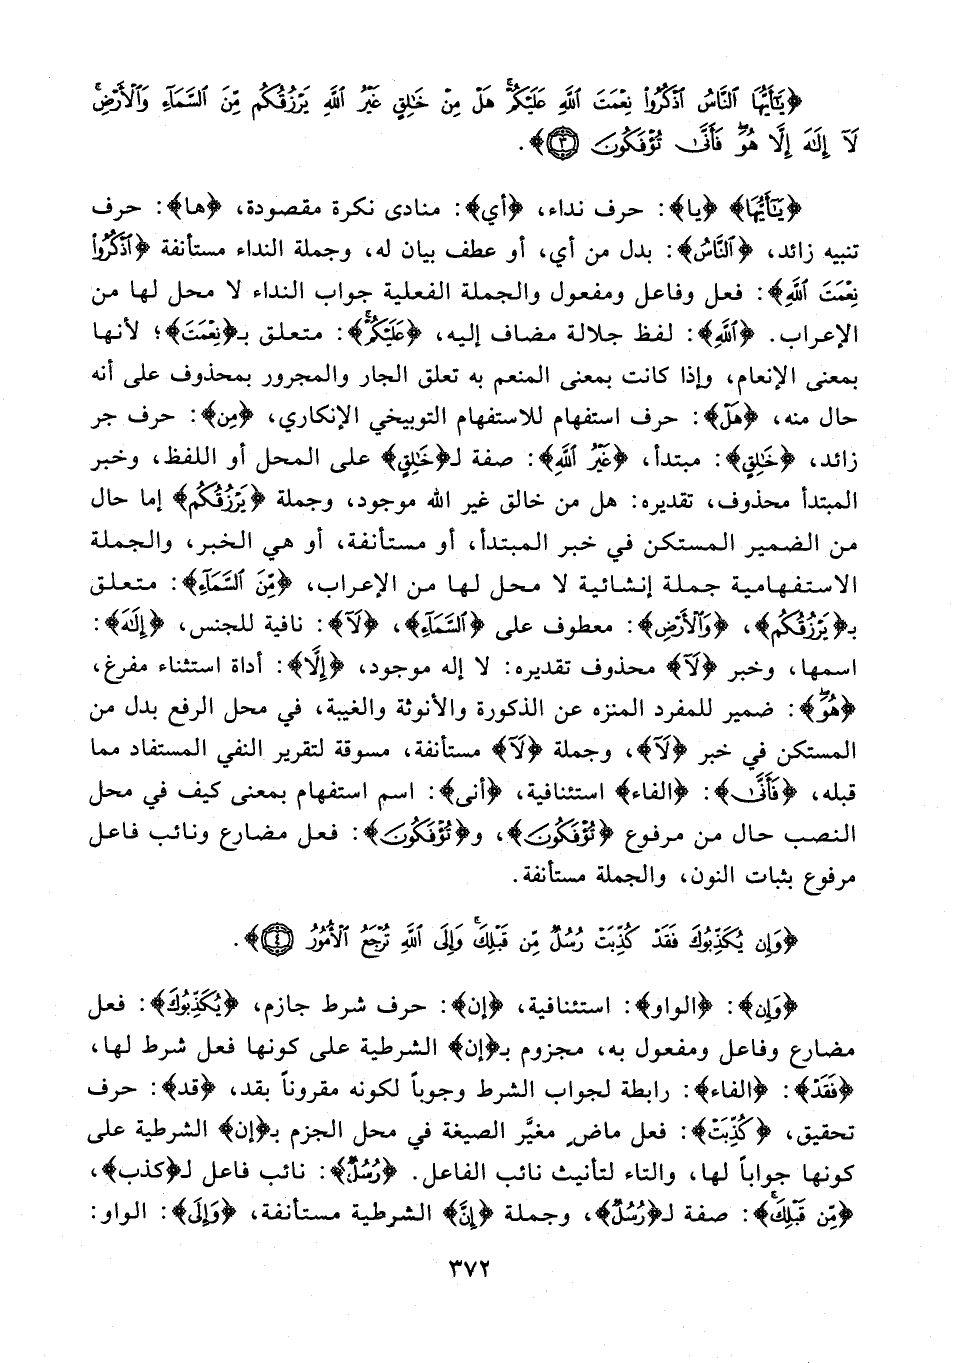 ﴿يَٰٓأَيُّهَا ٱلنَّاسُ ٱذْكُرُوا۟ نِعْمَتَ ٱللَّهِ عَلَيْكُمْ ۚ هَلْ مِنْ خَٰلِقٍ غَيْرُ ٱللَّهِ يَرْزُقُكُم مِّنَ ٱلسَّمَآءِ وَٱلْأَرْضِ ۚ
لَآ إِلَٰهَ إِلَّا هُوَ ۖ فَأَنَّىٰ تُؤْفَكُونَ ٣﴾.
﴿يَٰٓأَيُّهَا﴾ ﴿يا﴾: حرف نداء، ﴿أي﴾: منادى نكرة مقصودة، ﴿ها﴾: حرف
تنبيه زائد، ﴿ٱلنَّاسُ﴾: بدل من أي، أو عطف بيان له، وجملة النداء مستأنفة ﴿ٱذْكُرُوا۟
نِعْمَتَ ٱللَّهِ﴾: فعل وفاعل ومفعول والجملة الفعلية جواب النداء لا محل لها من
الإعراب. ﴿ٱللَّهِ﴾: لفظ جلالة مضاف إليه، ﴿عَلَيْكُمْ ۚ﴾: متعلق بـ﴿نِعْمَتَ﴾؛ لأنها
بمعنى الإنعام، وإذا كانت بمعنى المنعم به تعلق الجار والمجرور بمحذوف على أنه
حال منه، ﴿هَلْ﴾: حرف استفهام للاستفهام التوبيخي الإنكاري، ﴿مِن﴾: حرف جر
زائد، ﴿خَٰلِقٍ﴾: مبتدأ، ﴿غَيْرُ ٱللَّهِ﴾: صفة لـ﴿خَٰلِقٍ﴾ على المحل أو اللفظ، وخبر
المبتدأ محذوف، تقديره: هل من خالق غير الله موجود، وجملة ﴿يَرْزُقُكُم﴾ إما حال
من الضمير المستكن في خبر المبتدأ، أو مستأنفة، أو هي الخبر، والجملة
الاستفهامية جملة إنشائية لا محل لها من الإعراب، ﴿مِّنَ ٱلسَّمَآءِ﴾: متعلق
بـ﴿يَرْزُقُكُم﴾، ﴿وَٱلْأَرْضِ﴾: معطوف على ﴿ٱلسَّمَآءِ﴾، ﴿لَآ﴾: نافية للجنس، ﴿إِلَٰهَ﴾:
اسمها، وخبر ﴿لَآ﴾ محذوف تقديره: لا إله موجود، ﴿إِلَّا﴾: أداة استثناء مفرغ،
﴿هُوَ ۖ﴾: ضمير للمفرد المنزه عن الذكورة والأنوثة والغيبة، في محل الرفع بدل من
المستكن في خبر ﴿لَآ﴾، وجملة ﴿لَآ﴾ مستأنفة، مسوقة لتقرير النفي المستفاد مما
قبله، ﴿فَأَنَّىٰ﴾: ﴿الفاء﴾ استئنافية، ﴿أنى﴾: اسم استفهام بمعنى كيف في محل
النصب حال من مرفوع ﴿تُؤْفَكُونَ﴾، و﴿تُؤْفَكُونَ﴾: فعل مضارع ونائب فاعل
مرفوع بثبات النون، والجملة مستأنفة.
﴿وَإِن يُكَذِّبُوكَ فَقَدْ كُذِّبَتْ رُسُلٌ مِّن قَبْلِكَ ۚ وَإِلَى ٱللَّهِ تُرْجَعُ ٱلْأُمُورُ ٤﴾.
﴿وَإِن﴾: ﴿الواو﴾: استئنافية، ﴿إن﴾: حرف شرط جازم، ﴿يُكَذِّبُوكَ﴾: فعل
مضارع وفاعل ومفعول به، مجزوم بـ﴿إن﴾ الشرطية على كونها فعل شرط لها،
﴿فَقَدْ﴾: ﴿الفاء﴾: رابطة لجواب الشرط وجوباً لكونه مقروناً بقد، ﴿قد﴾: حرف
تحقيق، ﴿كُذِّبَتْ﴾: فعل ماضٍ مغيَّر الصيغة في محل الجزم بـ﴿إن﴾ الشرطية على
كونها جواباً لها، والتاء لتأنيث نائب الفاعل. ﴿رُسُلٌ﴾: نائب فاعل لـ﴿كذب﴾،
﴿مِّن قَبْلِكَ ۚ﴾: صفة لـ﴿رُسُلٌ﴾، وجملة ﴿إِنَّ﴾ الشرطية مستأنفة، ﴿وَإِلَى﴾: الواو:
٣٧٢